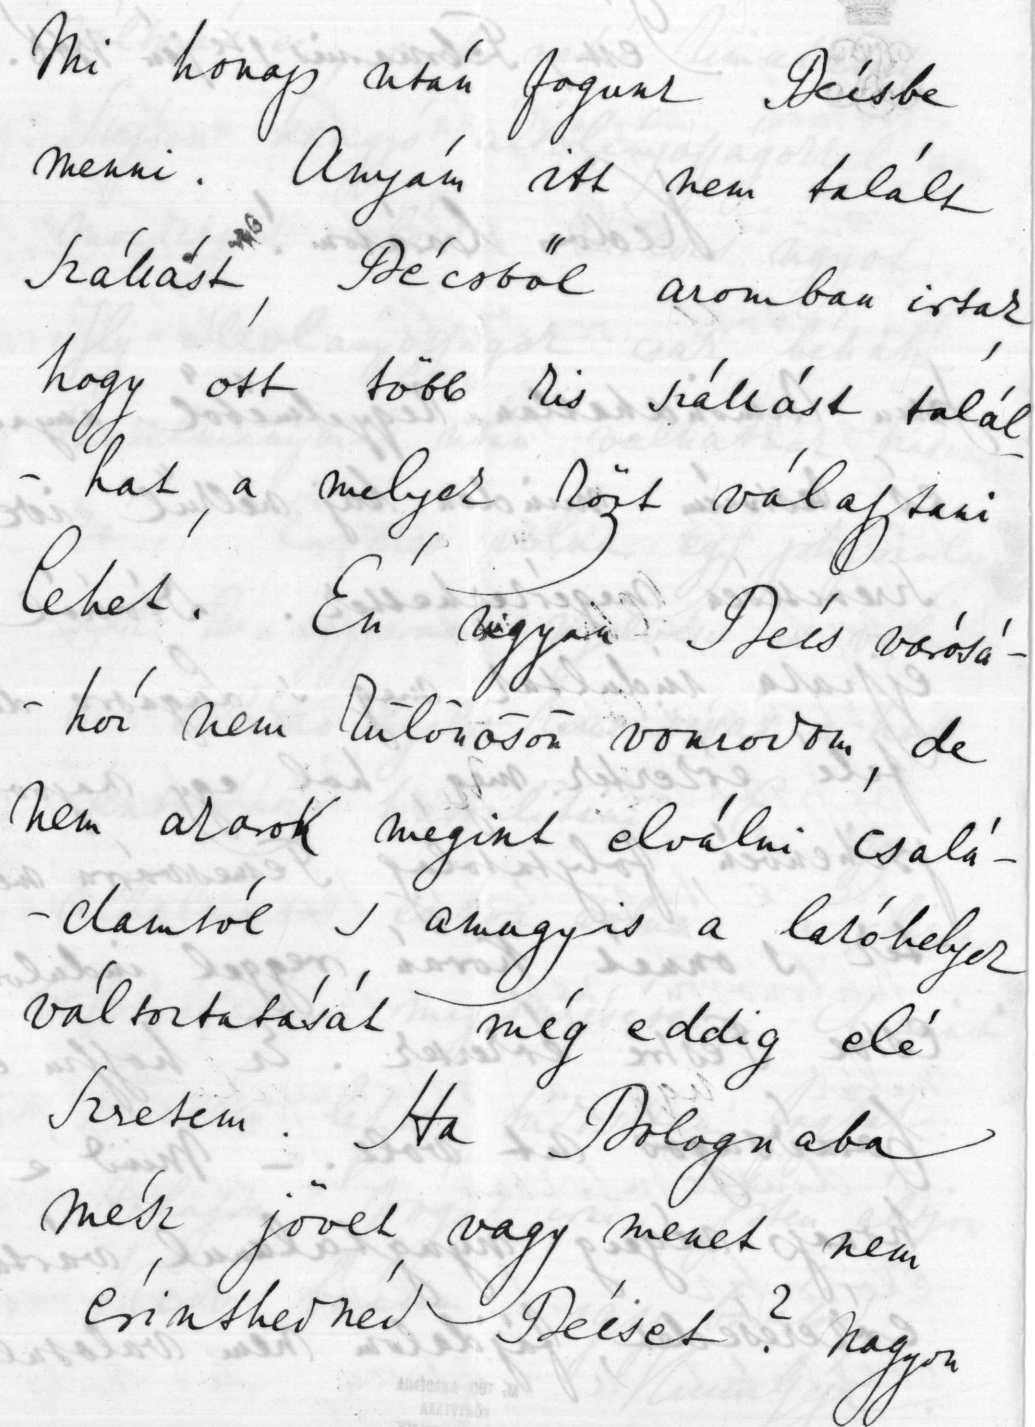 Mi honap után fogunk Bécsbe
menni. Anyám itt nem talált
szállást, Bécsből azomban irtak
hogy ott több kis szállást talál-
-hat, a melyek közt választani
lehet. Én ugyan Bécs városá-
-hoz nem különösön vonzodom, de
nem akarok megint elválni csalá-
-damtól s amugyis a lakóhelyek
változtatását még eddig elé
szeretem. Ha Bolognaba
mész jövet vagy menet nem
érinthednéd Bécset? Nagyon